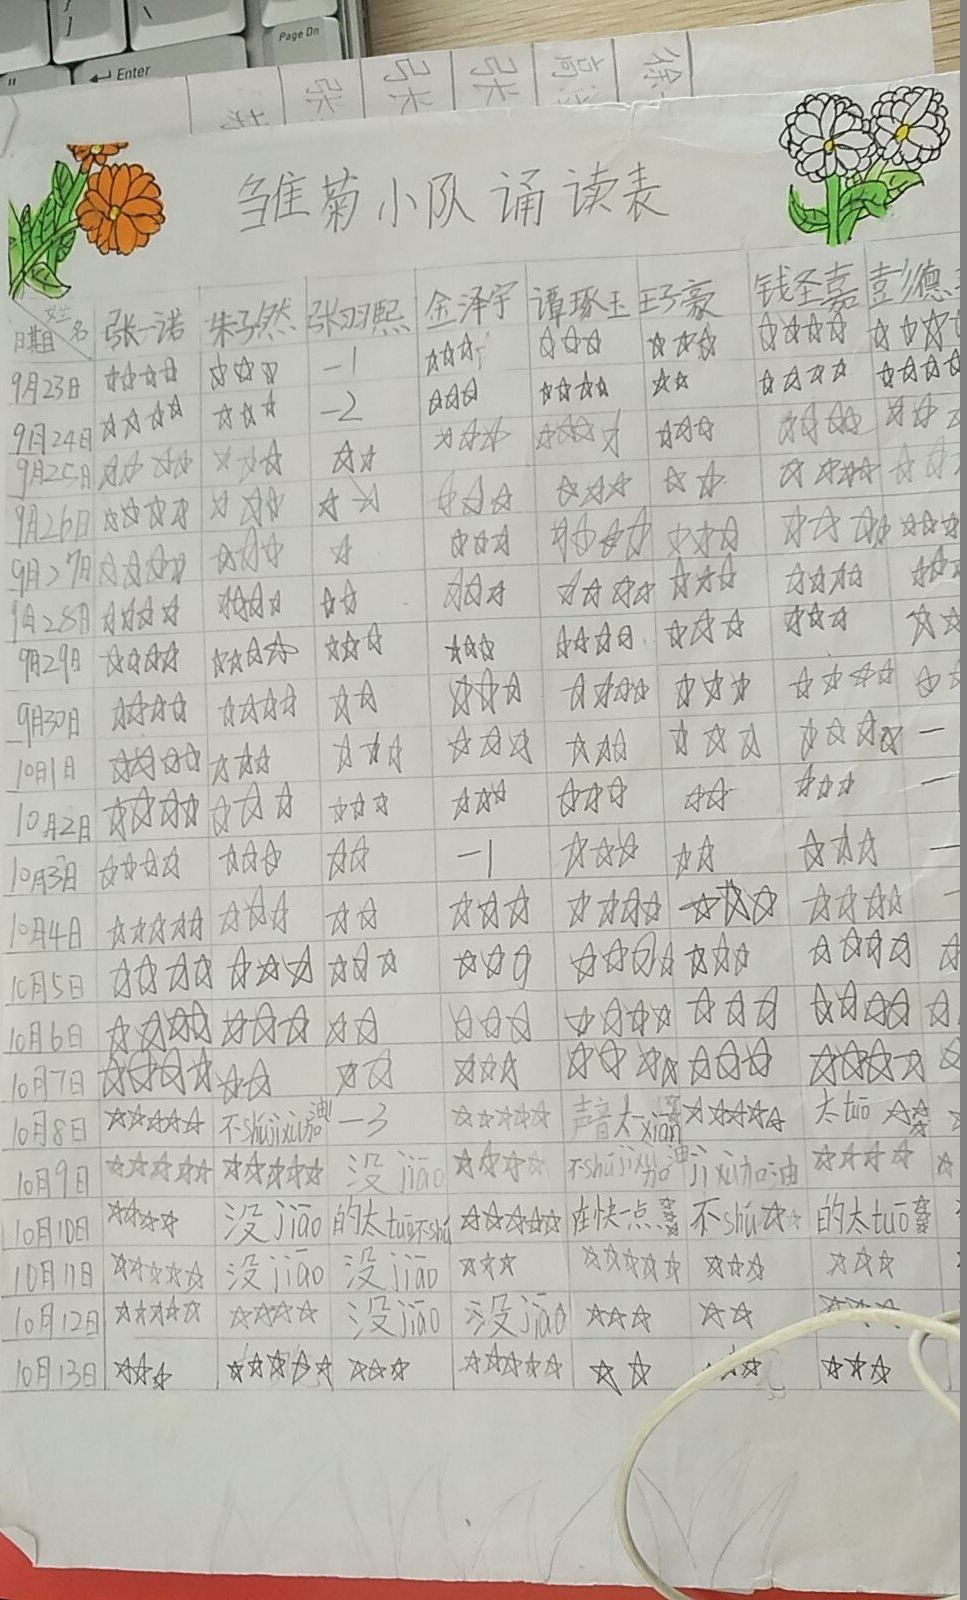 Page Dn
Enter
雏菊小队诵读表
姓名
日期
张一诺 朱子然 张羽熙 金泽宇 谭琢玉 王子豪 钱圣嘉 彭德
9月23日 ☆☆☆☆ ☆☆☆ -1 ☆☆☆ ☆☆☆ ☆☆☆ ☆☆☆☆ ☆☆☆☆
9月24日 ☆☆☆☆ ☆☆☆ -2 ☆☆☆ ☆☆☆☆ ☆☆ ☆☆☆☆ ☆☆☆☆
9月25日 ☆☆☆☆ ☆☆☆ ☆☆ ☆☆☆ ☆☆☆☆ ☆☆☆ ☆☆☆☆ ☆☆
9月26日 ☆☆☆☆ ☆☆☆ ☆☆ ☆☆☆ ☆☆☆ ☆☆ ☆☆☆☆ ☆☆
9月27日 ☆☆☆☆ ☆☆☆ ☆ ☆☆☆ ☆☆☆☆ ☆☆☆ ☆☆☆☆ ☆☆☆
9月28日 ☆☆☆☆ ☆☆☆☆ ☆☆ ☆☆☆ ☆☆☆☆ ☆☆☆ ☆☆☆☆ ☆☆
9月29日 ☆☆☆☆ ☆☆☆☆ ☆☆☆ ☆☆☆ ☆☆☆☆ ☆☆☆ ☆☆☆ ☆☆
9月30日 ☆☆☆☆ ☆☆☆☆ ☆☆ ☆☆☆ ☆☆☆☆ ☆☆☆ ☆☆☆☆ ☆☆
10月1日 ☆☆☆☆ ☆☆☆ ☆☆☆ ☆☆☆ ☆☆☆ ☆☆☆ ☆☆☆☆ -
10月2日 ☆☆☆☆ ☆☆☆ ☆☆☆ ☆☆☆ ☆☆☆ ☆☆ ☆☆☆ -
10月3日 ☆☆☆☆ ☆☆☆ ☆☆ -1 ☆☆☆ ☆☆ ☆☆☆ -
10月4日 ☆☆☆☆☆ ☆☆☆ ☆☆ ☆☆☆ ☆☆☆☆ ☆☆☆ ☆☆☆☆ -
10月5日 ☆☆☆☆ ☆☆☆ ☆☆☆ ☆☆☆ ☆☆☆☆ ☆☆☆ ☆☆☆☆ ☆
10月6日 ☆☆☆☆ ☆☆☆ ☆☆ ☆☆☆ ☆☆☆☆ ☆☆☆ ☆☆☆☆ ☆
10月7日 ☆☆☆☆ ☆☆ ☆☆ ☆☆☆ ☆☆☆☆ ☆☆☆ ☆☆☆☆ ☆
10月8日 ☆☆☆☆☆ 不shújìxù加油 -3 ☆☆☆☆☆ 声音太xiǎn ☆☆☆☆☆ 太tuō ☆☆☆
10月9日 ☆☆☆☆☆ ☆☆☆☆☆ 没jiāo ☆☆☆☆ 不shújìxù加油 jìxù加油 ☆☆☆☆ ☆
10月10日 ☆☆☆☆ 没jiāo 的太tuō不shú ☆☆☆☆☆ 在快一点 不shú☆☆ 的太tuō
10月11日 ☆☆☆☆☆ 没jiāo 没jiāo ☆☆☆ ☆☆☆☆☆ ☆☆☆ ☆☆☆
10月12日 ☆☆☆☆☆ ☆☆☆☆ 没jiāo 没jiāo ☆☆☆ ☆☆ ☆☆☆
10月13日 ☆☆☆ ☆☆☆☆☆ ☆☆☆ ☆☆☆☆☆ ☆☆ ☆☆ ☆☆☆